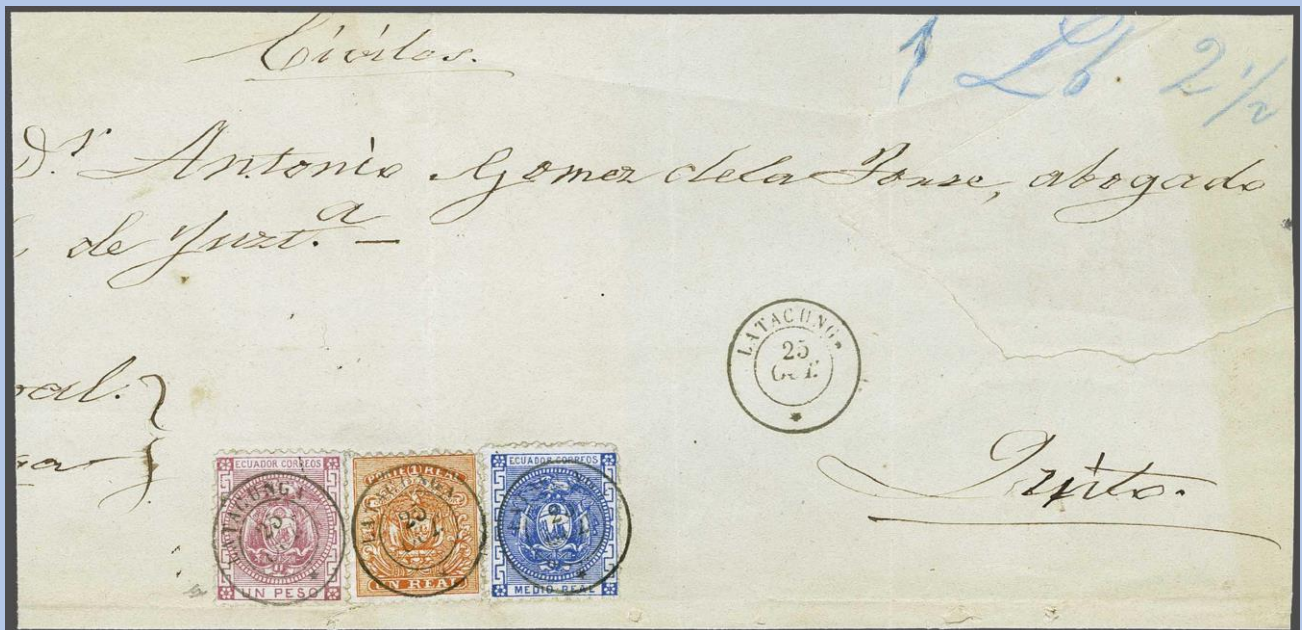 Civiles.
1 Lb. 2 1/2
Dr. Antonio Gomez dela Torre, abogado
de Juzt.a —
LATACUNGA
25
al.
ECUADOR CORREOS
LATACUNGA
25
UN PESO
PORTE 1 REAL
LATACUNGA
25
UN REAL
ECUADOR CORREOS
MEDIO REAL
Quito.